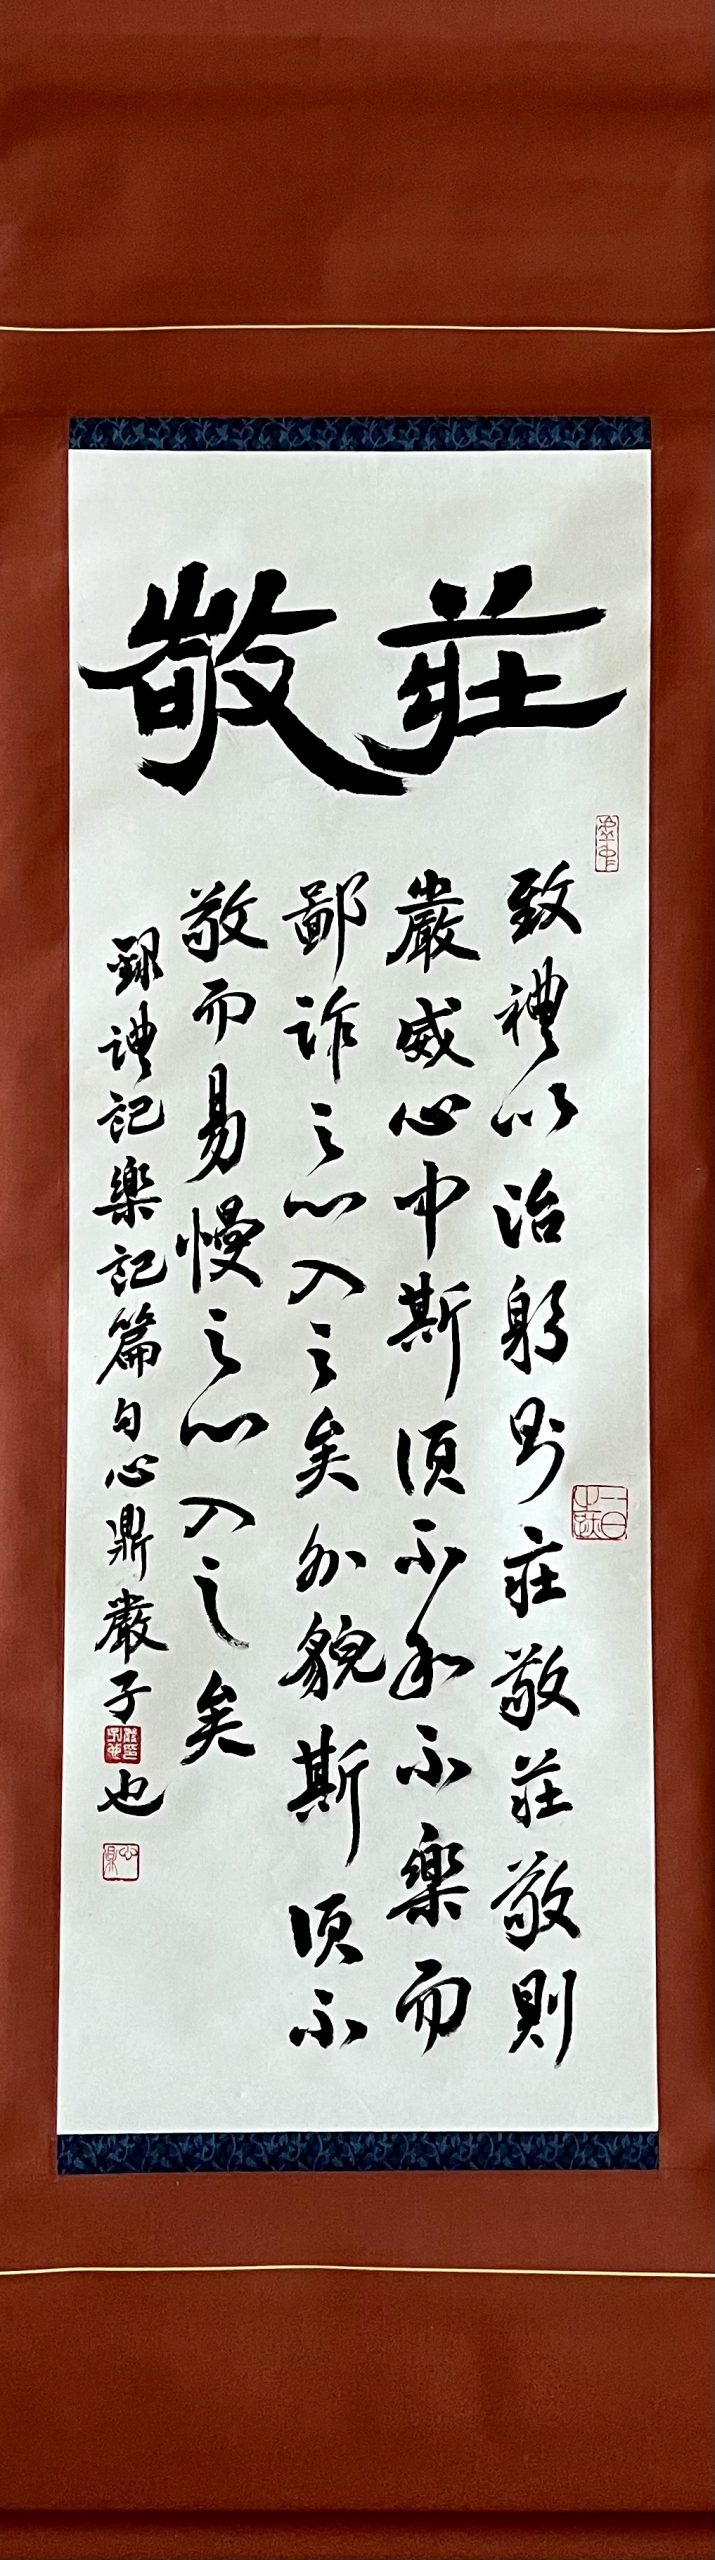 莊敬
致禮以治躬則莊敬莊敬則
嚴威心中斯須不和不樂而
鄙詐之心入之矣外貌斯須不
敬而易慢之心入之矣
錄禮記樂記篇句心鼎嚴子也